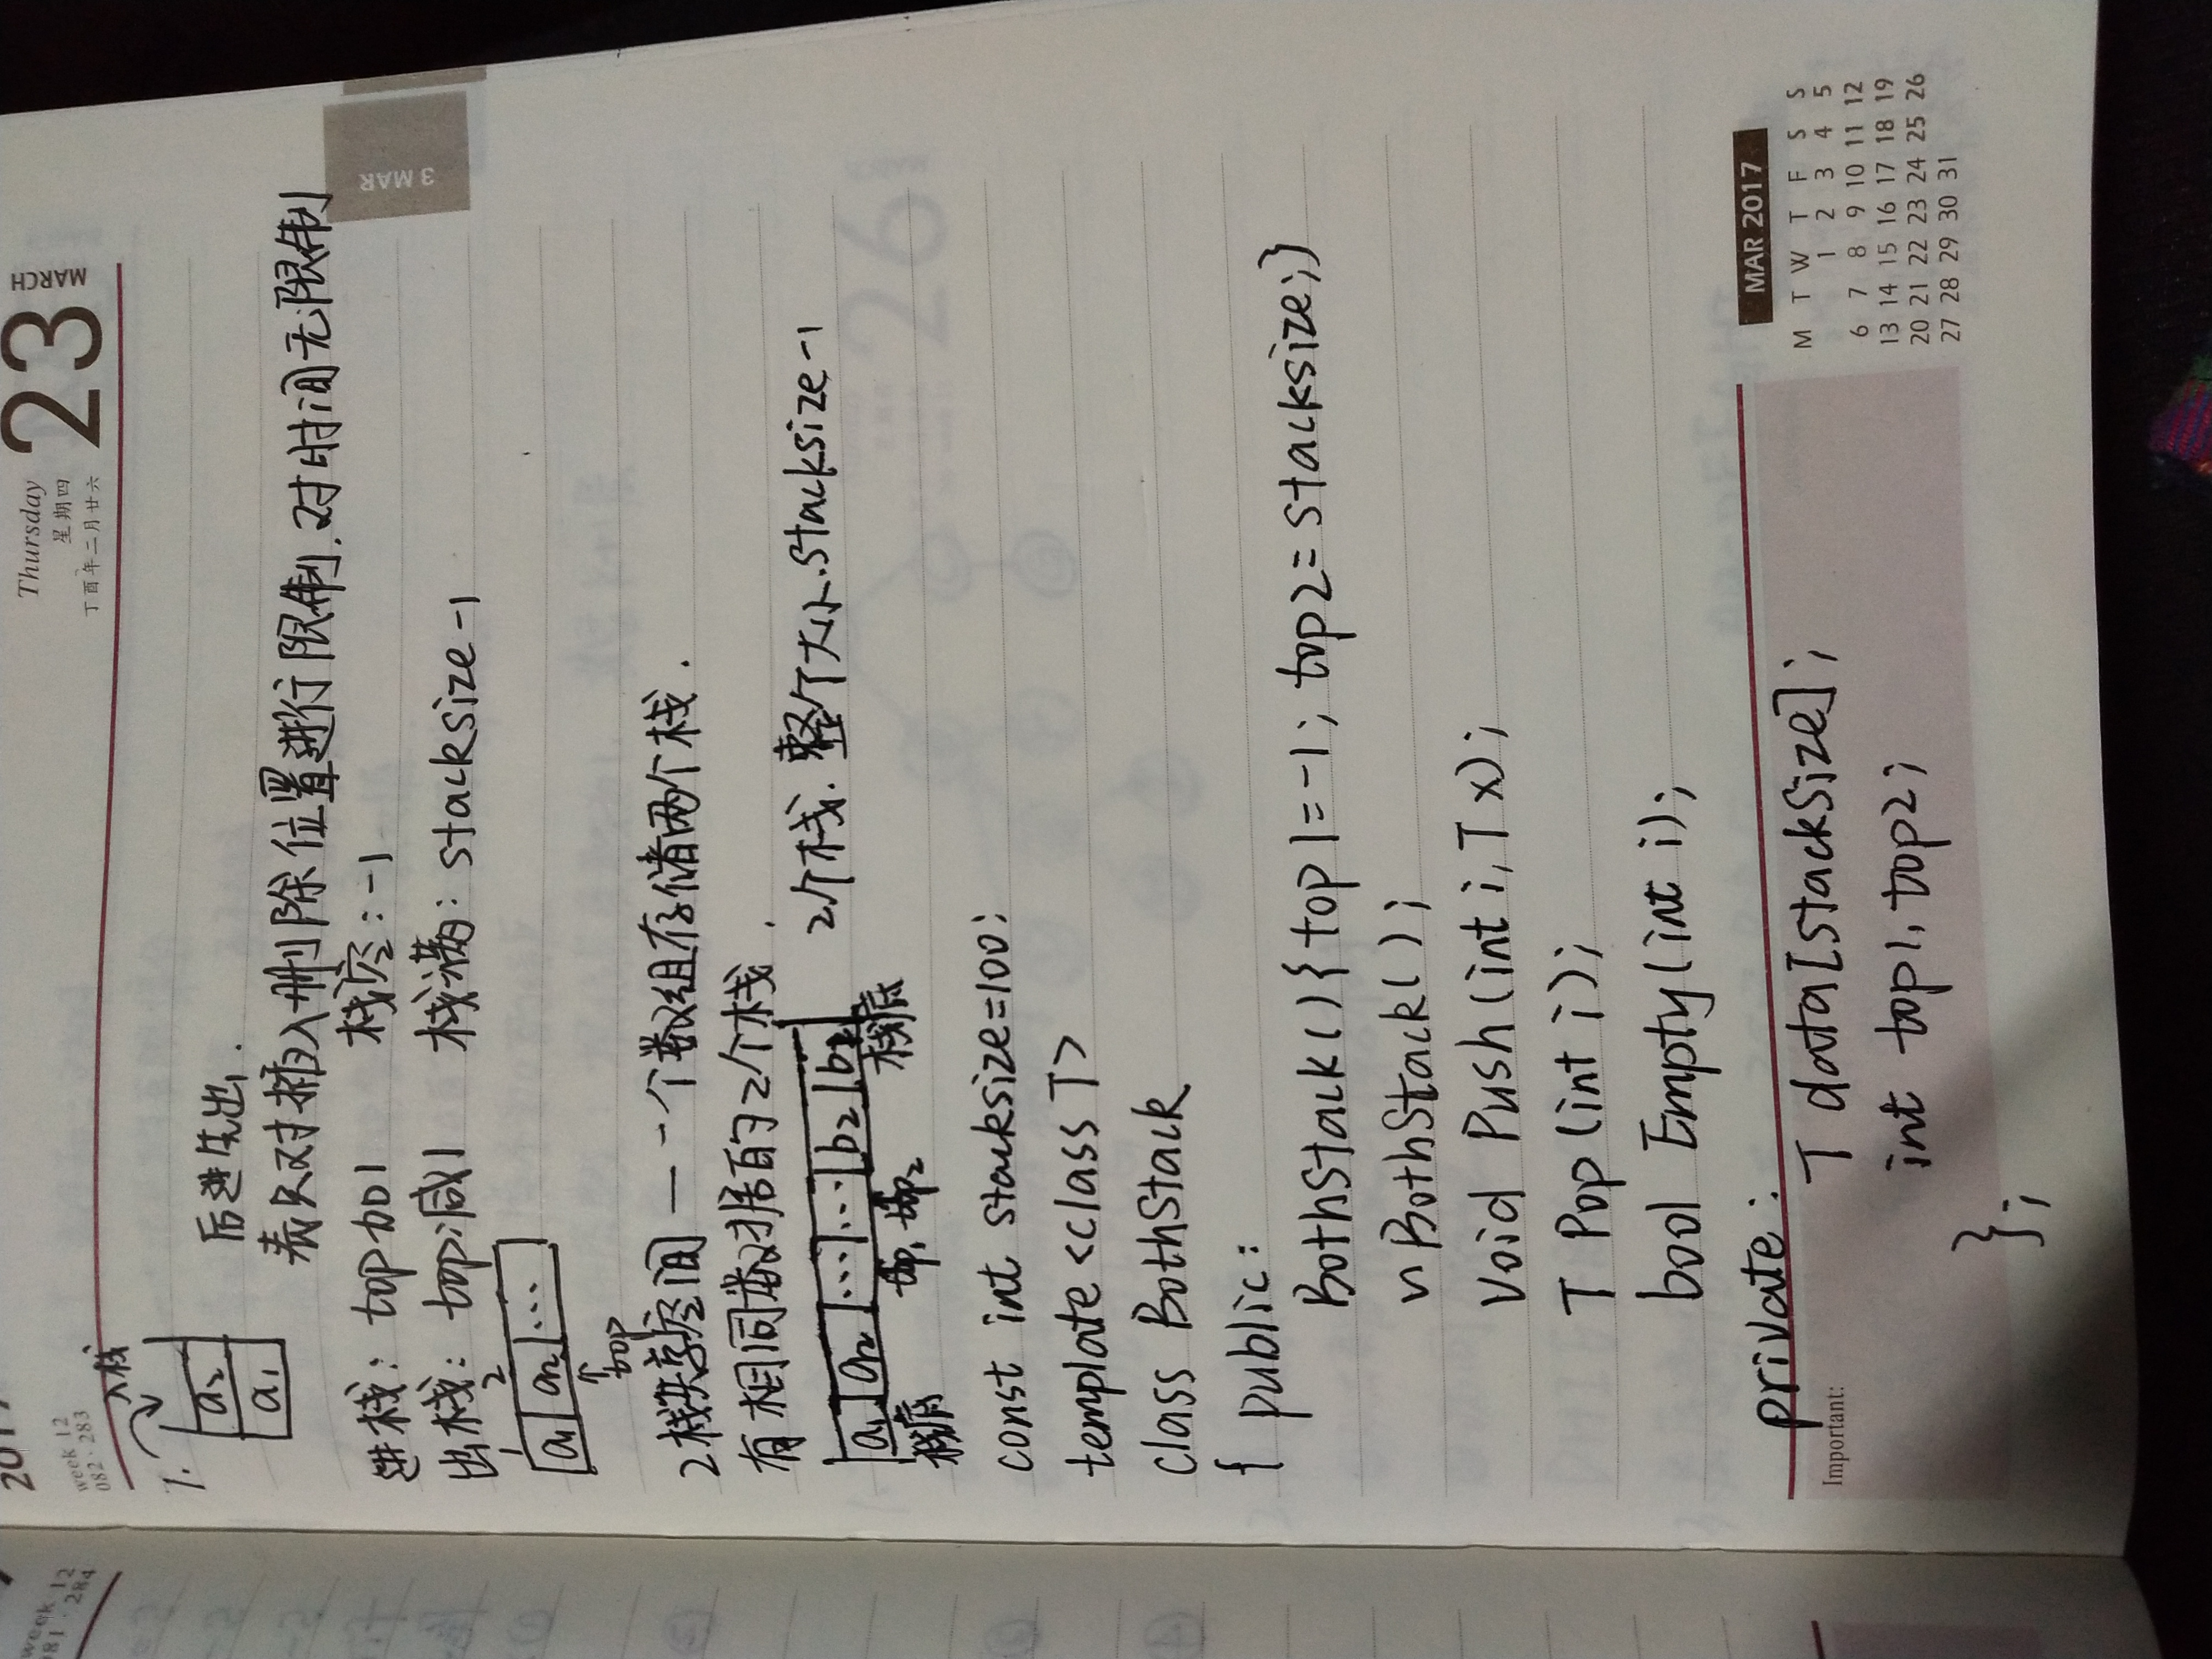 week 12
081 · 284
2017
week 12
082 · 283
Thursday
星期四
丁酉年二月廿六
23
MARCH
入栈
1.
a2
a1
后进先出.
表只对插入删除位置进行限制.对时间无限制
进栈: top加1 栈空: -1
出栈: top减1 栈满: stacksize-1
1 2
a1 a2 ...
↑
top
2栈共享空间 — 一个数组存储两个栈.
有相同数据的2个栈.
a1 a2 ... ... b2 b1
2个栈.整个大小.stacksize-1
栈底 top1 top2 栈底
3 MAR
const int stacksize=100;
template <class T>
class BothStack
{ public:
BothStack(){top1=-1; top2=stacksize;}
~BothStack();
void Push(int i,T x);
T Pop(int i);
bool Empty(int i);
private:
T data[stackSize];
int top1,top2;
};
Important:
MAR 2017
M T W T F S S
1 2 3 4 5
6 7 8 9 10 11 12
13 14 15 16 17 18 19
20 21 22 23 24 25 26
27 28 29 30 31